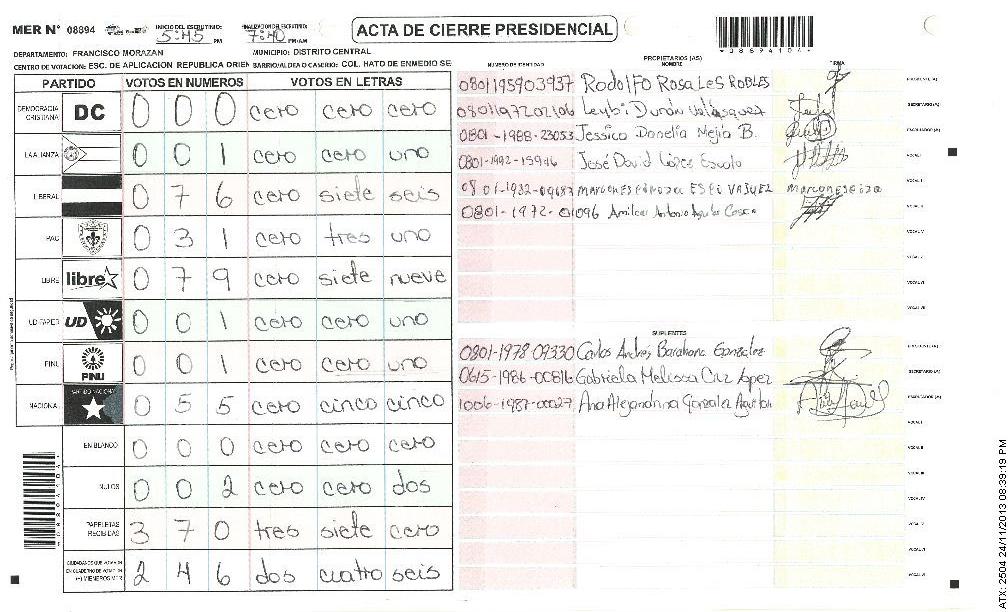 MER N° 08894 INICIO DEL ESCRUTINIO: 5:45 PM FINALIZACION DEL ESCRUTINIO: 7:40 PM/AM
ACTA DE CIERRE PRESIDENCIAL
DEPARTAMENTO: FRANCISCO MORAZAN MUNICIPIO: DISTRITO CENTRAL
CENTRO DE VOTACION: ESC. DE APLICACION REPUBLICA ORIEN BARRIO/ALDEA O CASERIO: COL. HATO DE ENMEDIO SE
PARTIDO VOTOS EN NUMEROS VOTOS EN LETRAS
DEMOCRACIA CRISTIANA DC 0 0 0 cero cero cero
LA ALIANZA 0 0 1 cero cero uno
LIBERAL 0 7 6 cero siete seis
PAC 0 3 1 cero tres uno
LIBRE libre 0 7 9 cero siete nueve
UD-FAPER UD 0 0 1 cero cero uno
PINU PINU 0 0 1 cero cero uno
NACIONAL PARTIDO NACIONAL 0 5 5 cero cinco cinco
EN BLANCO 0 0 0 cero cero cero
NULOS 0 0 2 cero cero dos
PAPELETAS RECIBIDAS 3 7 0 tres siete cero
CIUDADANOS QUE VOTARON EN CUADERNO DE VOTACION (+) MIEMBROS MER 2 4 6 dos cuatro seis
PROPIETARIOS (AS)
NUMERO DE IDENTIDAD NOMBRE FIRMA
0801195903937 Rodolfo Rosales Robles PRESIDENTE(A)
0801197202106 SECRETARIO(A)
0801-1988-23053 Jessica Donelia Mejia B. ESCRUTADOR(A)
0801-1992-15946 José David López VOCAL I
VOCAL II
0801-1972-01096 Amilcar Antonio Aguilar VOCAL III
VOCAL IV
VOCAL V
VOCAL VI
VOCAL VII
SUPLENTES
0801-1978 09330 Carlos Andrés Barahona Gonzalez PRESIDENTE(A)
0615-1986-00816 Gabriela Melissa Cruz Lopez SECRETARIO(A)
1006-1987-00027 Ana Alejandrina Gonzalez Aguilar ESCRUTADOR(A)
VOCAL I
VOCAL II
VOCAL III
VOCAL IV
VOCAL V
VOCAL VI
ATX: 2504 24/11/2013 08:39:19 PM